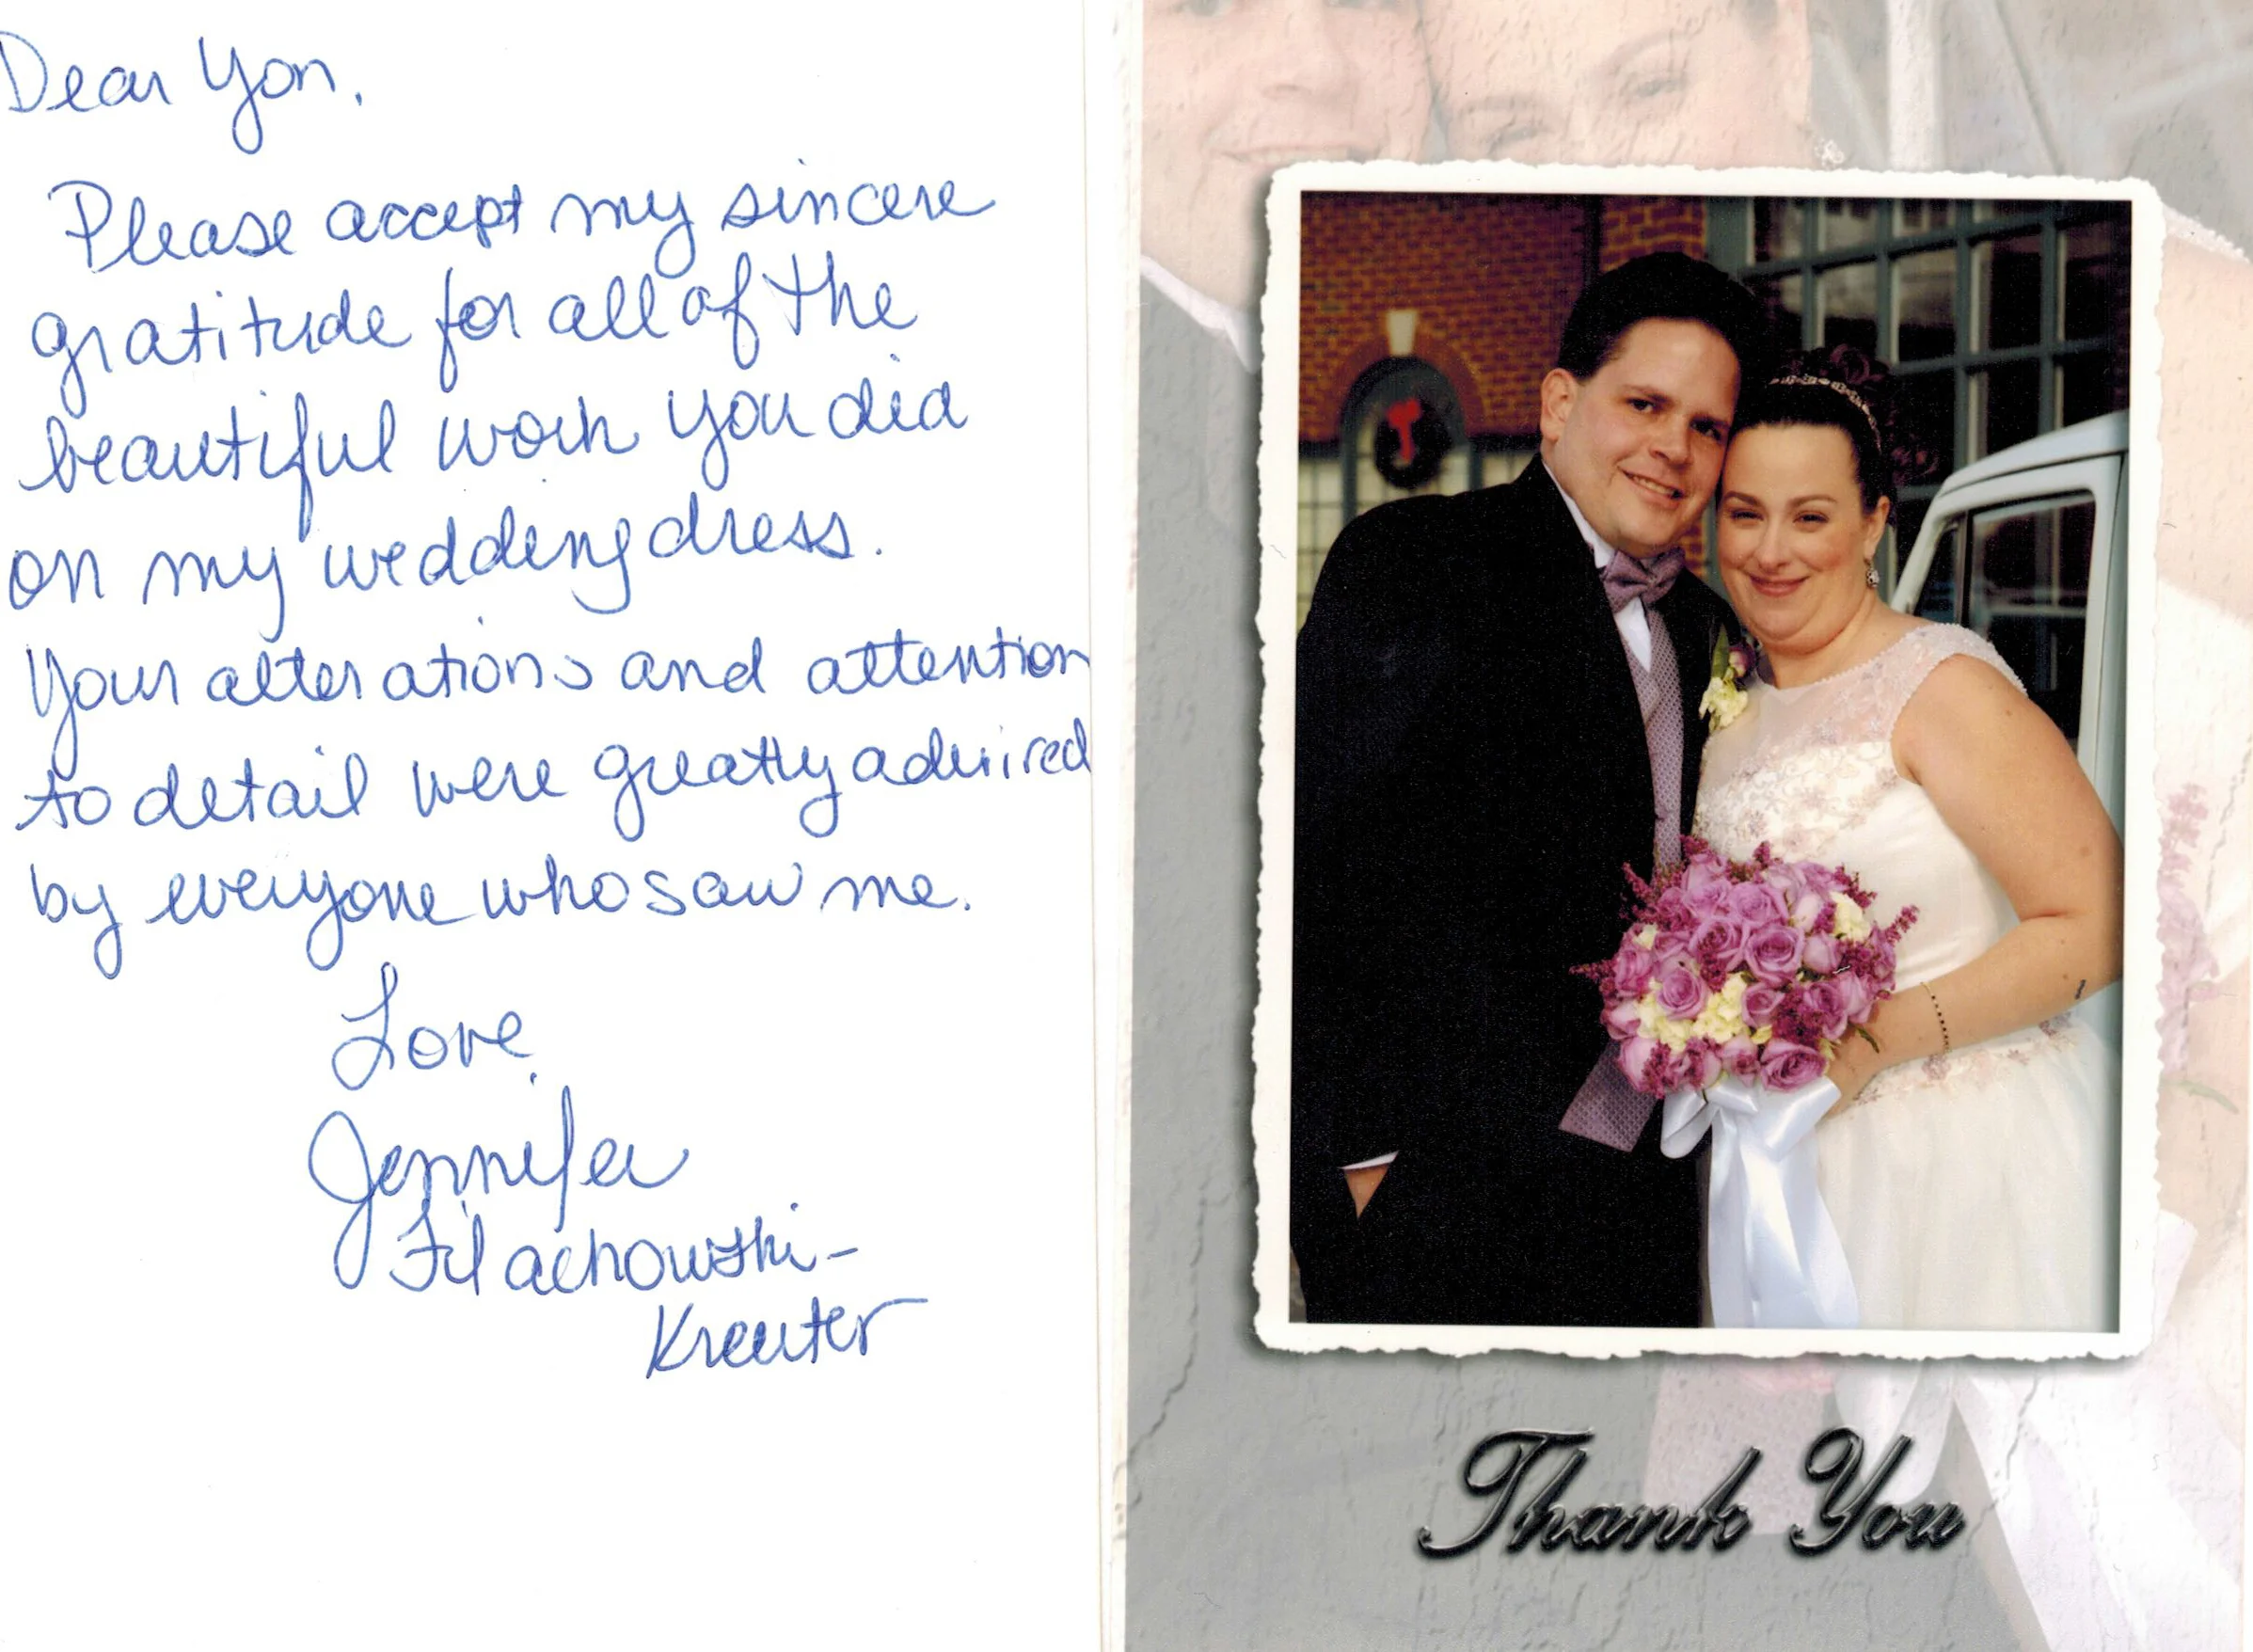 Dear Yon,
Please accept my sincere
gratitude for all of the
beautiful work you did
on my wedding dress.
Your alterations and attention
to detail were greatly admired
by everyone who saw me.
Love,
Jennifer
Filachowski-
Kreuter
Thank You